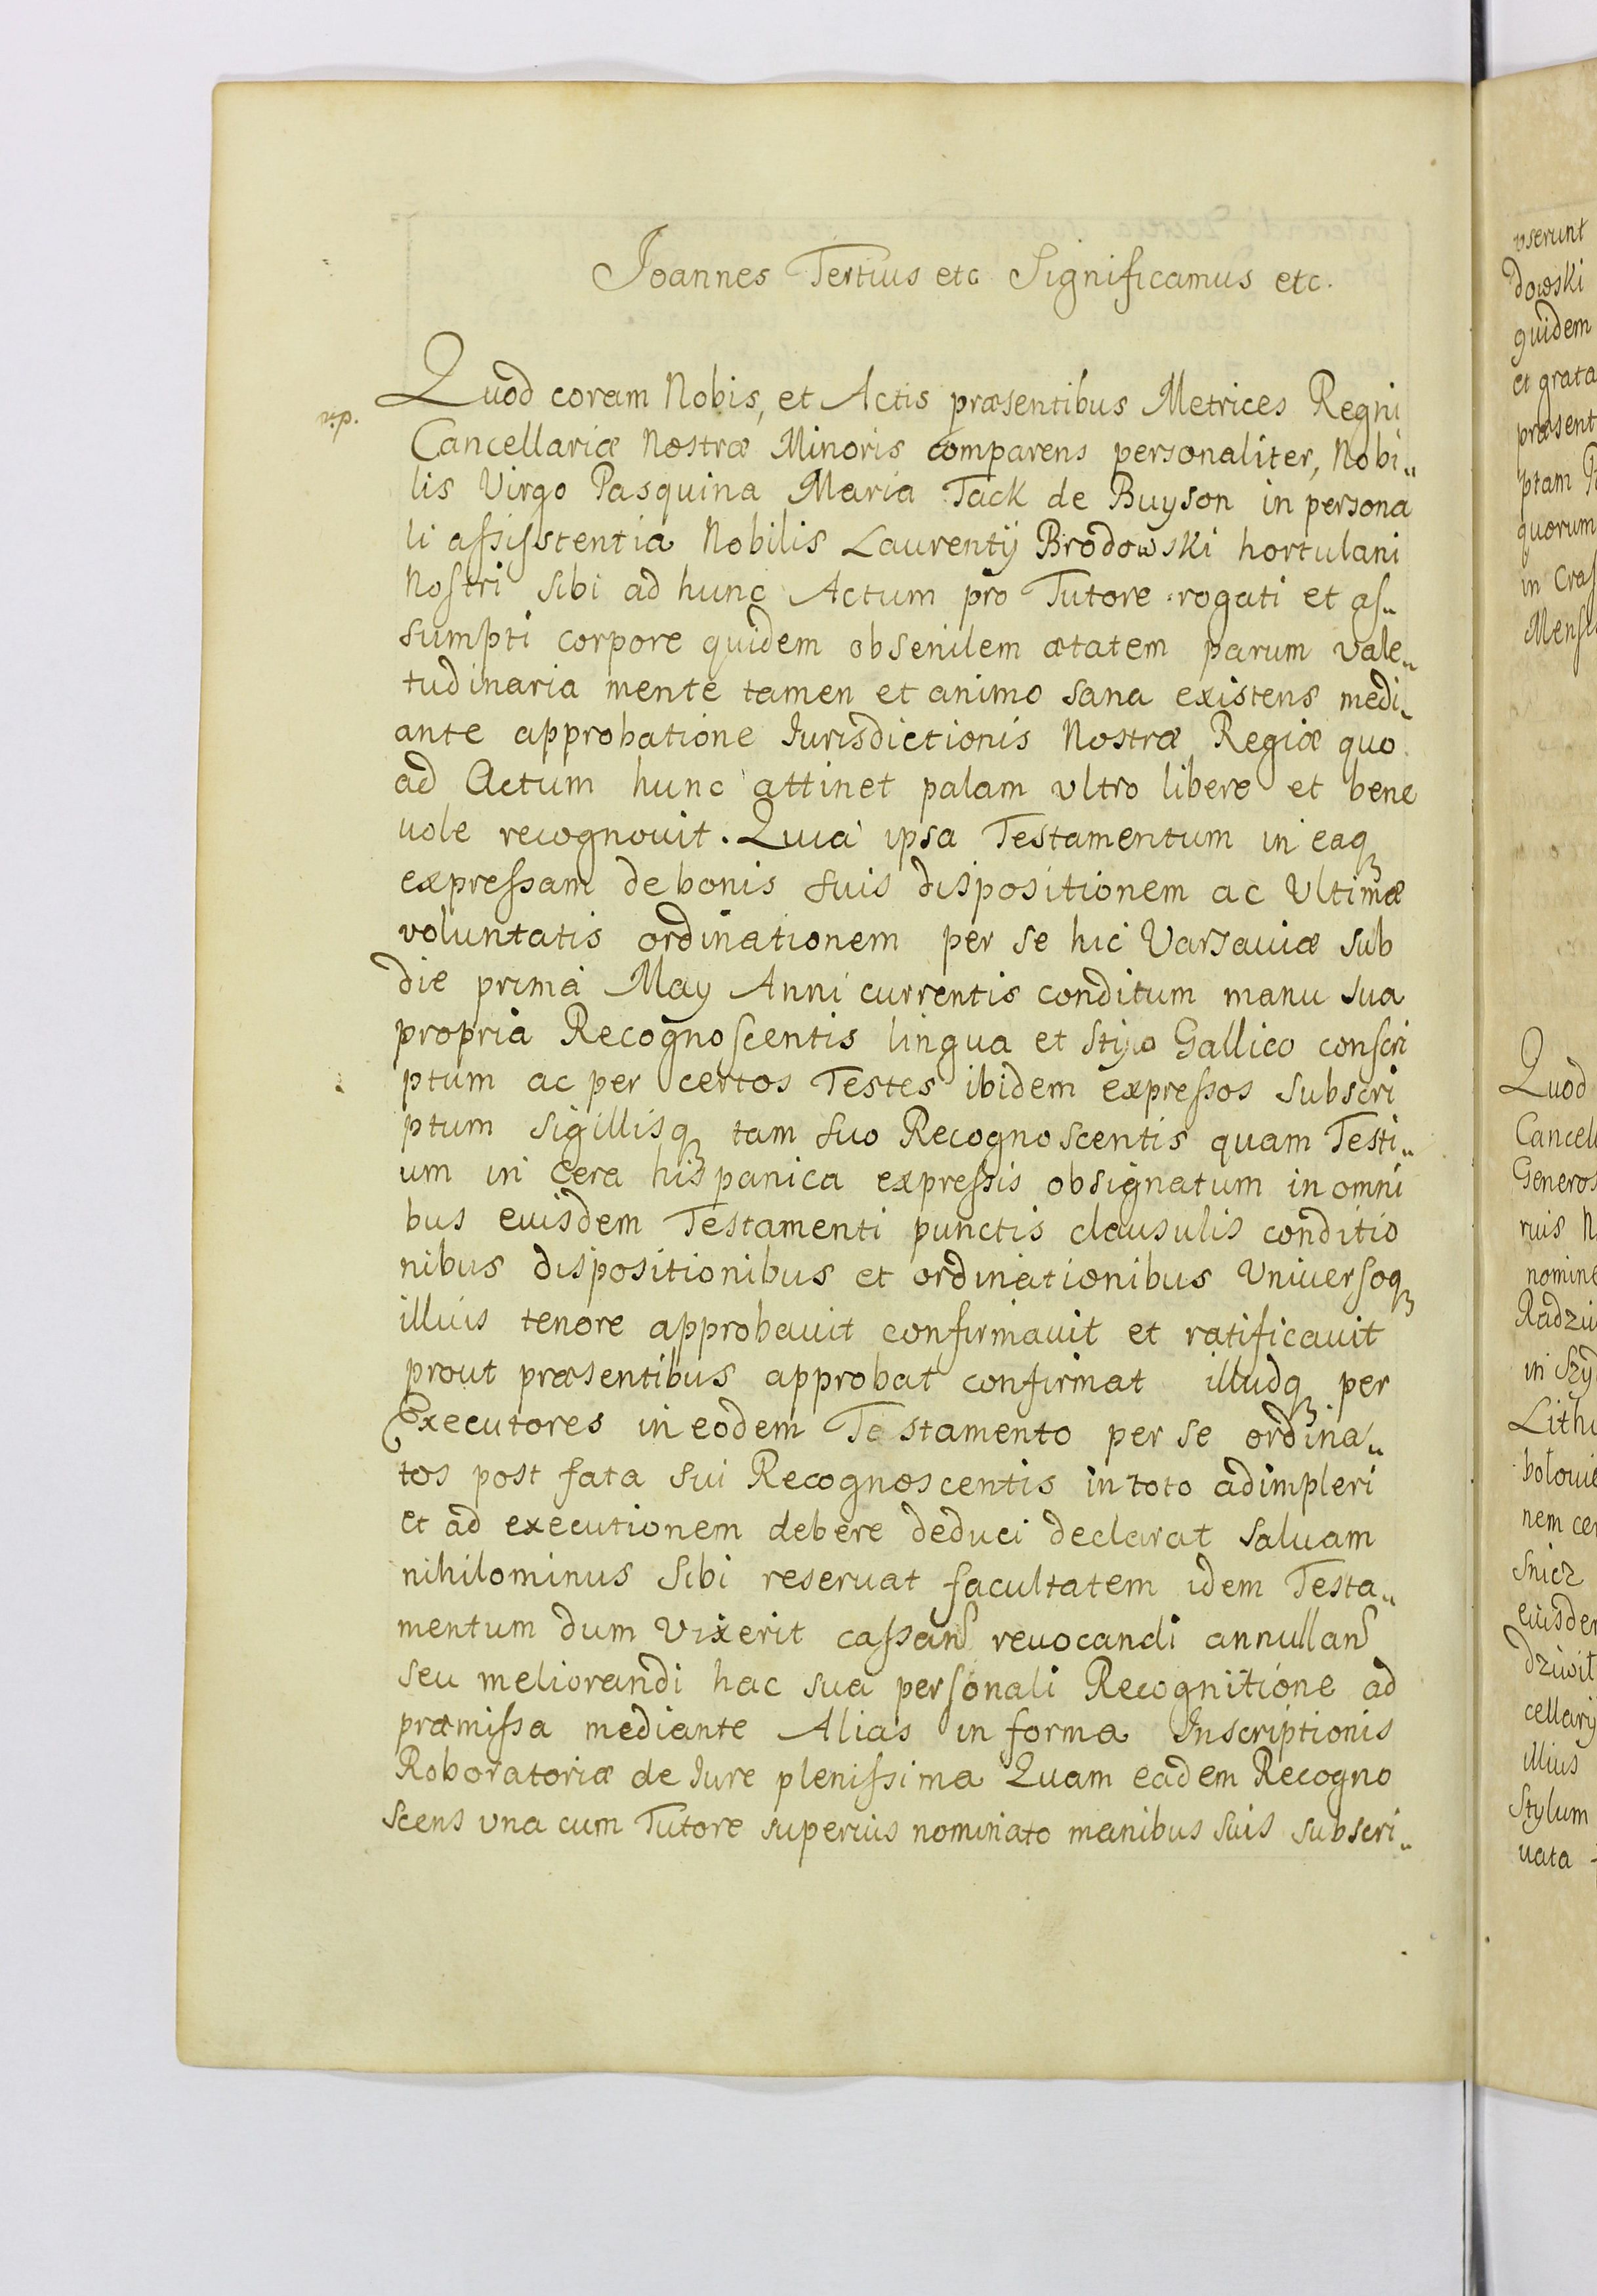 Joannes Tertius etc Significamus etc.
Quod coram Nobis, et Actis præsentibus Metrices Regni
n.p.
Cancellariæ Nostræ Minoris comparens personaliter, Nobi„
lis Virgo Pasquina Maria Tack de Buyson in persona
li aſsiſstentia Nobilis Laurentij Brodowski hortulani
Noſtri sibi ad hunc Actum pro Tutore rogati et aſ„
sumpti corpore quidem obsenilem ætatem parum vale„
tudinaria mente tamen et animo sana existens medi„
ante approbatione Jurisdictionis Nostræ Regiæ quo
ad Actum hunc attinet palam vltro libere et bene
uole recognouit. Quia ipsa Testamentum in eaq
expreſsam de bonis suis dispositionem ac Vltimæ
voluntatis ordinationem per se hic Varsauiæ sub
die prima May Anni currentis conditum manu sua
propria Recognoſcentis lingua et Stylo Gallico conſcri
ptum ac per certos Testes ibidem expreſsos subscri
ptum sigillisq tam suo Recognoscentis quam Testi„
um in cera hispanica expreſsis obsignatum in omni
bus euisdem Testamenti punctis clausulis conditio
nibus dispositionibus et ordinationibus Vniuerſoq
illuis tenore approbauit confirmauit et ratificauit
prout præsentibus approbat confirmat illudq per
Executores in eodem Testamento per se ordina„
tos post fata sui Recognoscentis in toto adimpleri
et ad executionem debere deduci declarat saluam
nihilominus sibi reseruat facultatem idem Testa„
mentum dum vixerit caſsand reuocandi annulland
seu meliorandi hac sua perſonali Recognitione ad
præmiſsa mediante Alias in forma Inscriptionis
Roboratoriæ de Jure pleniſsima Quam eadem Recogno
scens vna cum Tutore superius nominato manibus suis subscri„
vserunt
dowski
quidem
et grata
præsent
ptam
quorum
in Craſ
Menſis
Quod
Cancell
Generos
ruis N
nomine
Radziu
in Szyd
Lithu
botouie
nem cer
Snicz
euisdem
dziwil
cellarij
illius
Stylum
uata